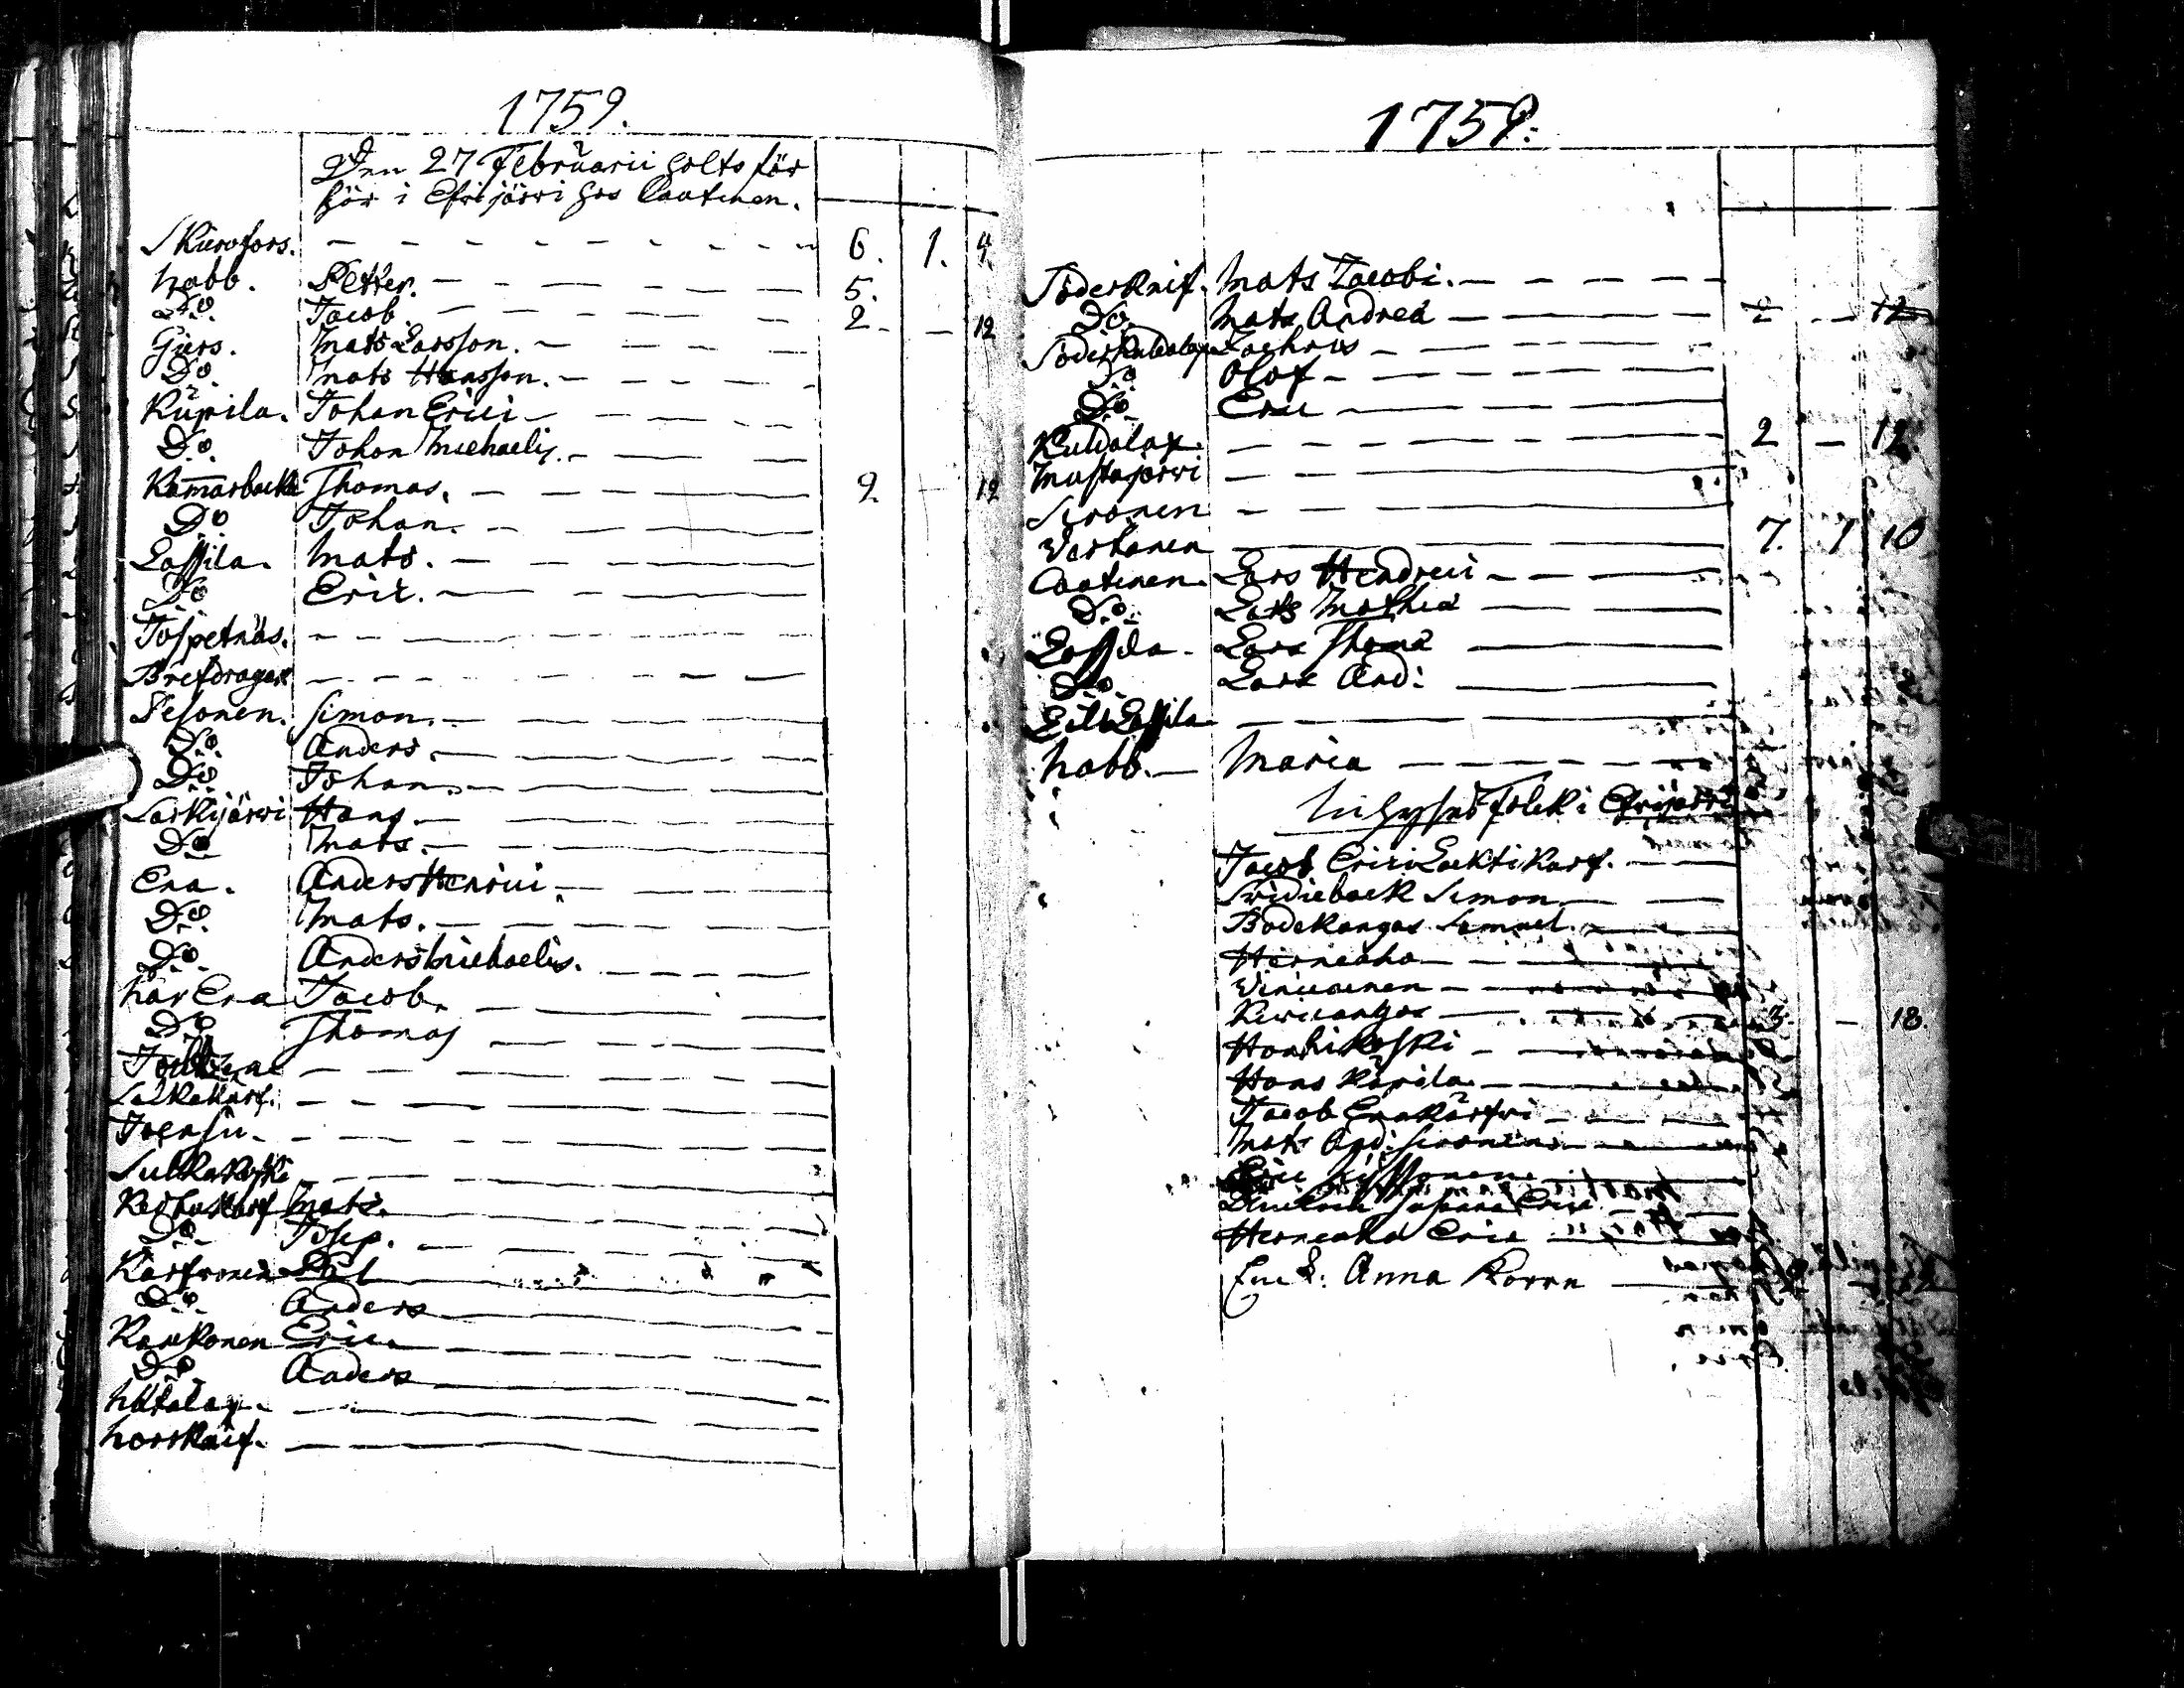 1759.
Den 27 Februarii holts för
hör i Efwijärwi hos Caatinen.
Skurofors. 6. 1. 4
Nabb. Petter. 5.
Do Jacob 2 - 12
Giers. Mats Larsson.
Do Mats Hansson.
Kupila. Johan Erici
Do Johan Michaelis.
Kamarbacka Thomas. 2 - 12
Do Johan.
Lassila. Mats.
Do Eric.
Jöspetnäs.
Brefdragar
Pesonen. Simon.
Do Anders
Do Johan
Särkijärwi Hans.
Do Mats.
Ena. Anders Henrici
Do Mats.
Do Anders Michaelis.
När Ena Jacob.
Do Thomas
Salkokarf.
Joensu.
Sulkakoski
Mats.
Do Josep.
Karfvonen Pål
Do Anders
Kaukonen Eric
Do Anders
Norrknif.
1759:
Söderknif. Mats Jacobi.
Do Mats Andreæ 2 - 12
Zachris
Do Olof
Do Eric
Kuldalax. 2 - 12.
Mustajärwi
Sironen
Werhonen 7. 1 10
Caatinen. Lars Hendrici
Do Lars Mathiæ
Lassila Lars Thomæ
Do Lars And:
Lill Lassila
Nabb. Maria
Inhyses Folck i Efwijärwi
Jacob Erici Lacktikarf.
Swidieback Simon
Bodekangas Samuel
Herneaho
Winicainen
Kiwicangas 3. - 18.
Honkikoski
Hans Kupila
Jacob Enakärfwi
Mats And: Sironen
Eric
Herneaho Eric
Enck: Anna Korrn